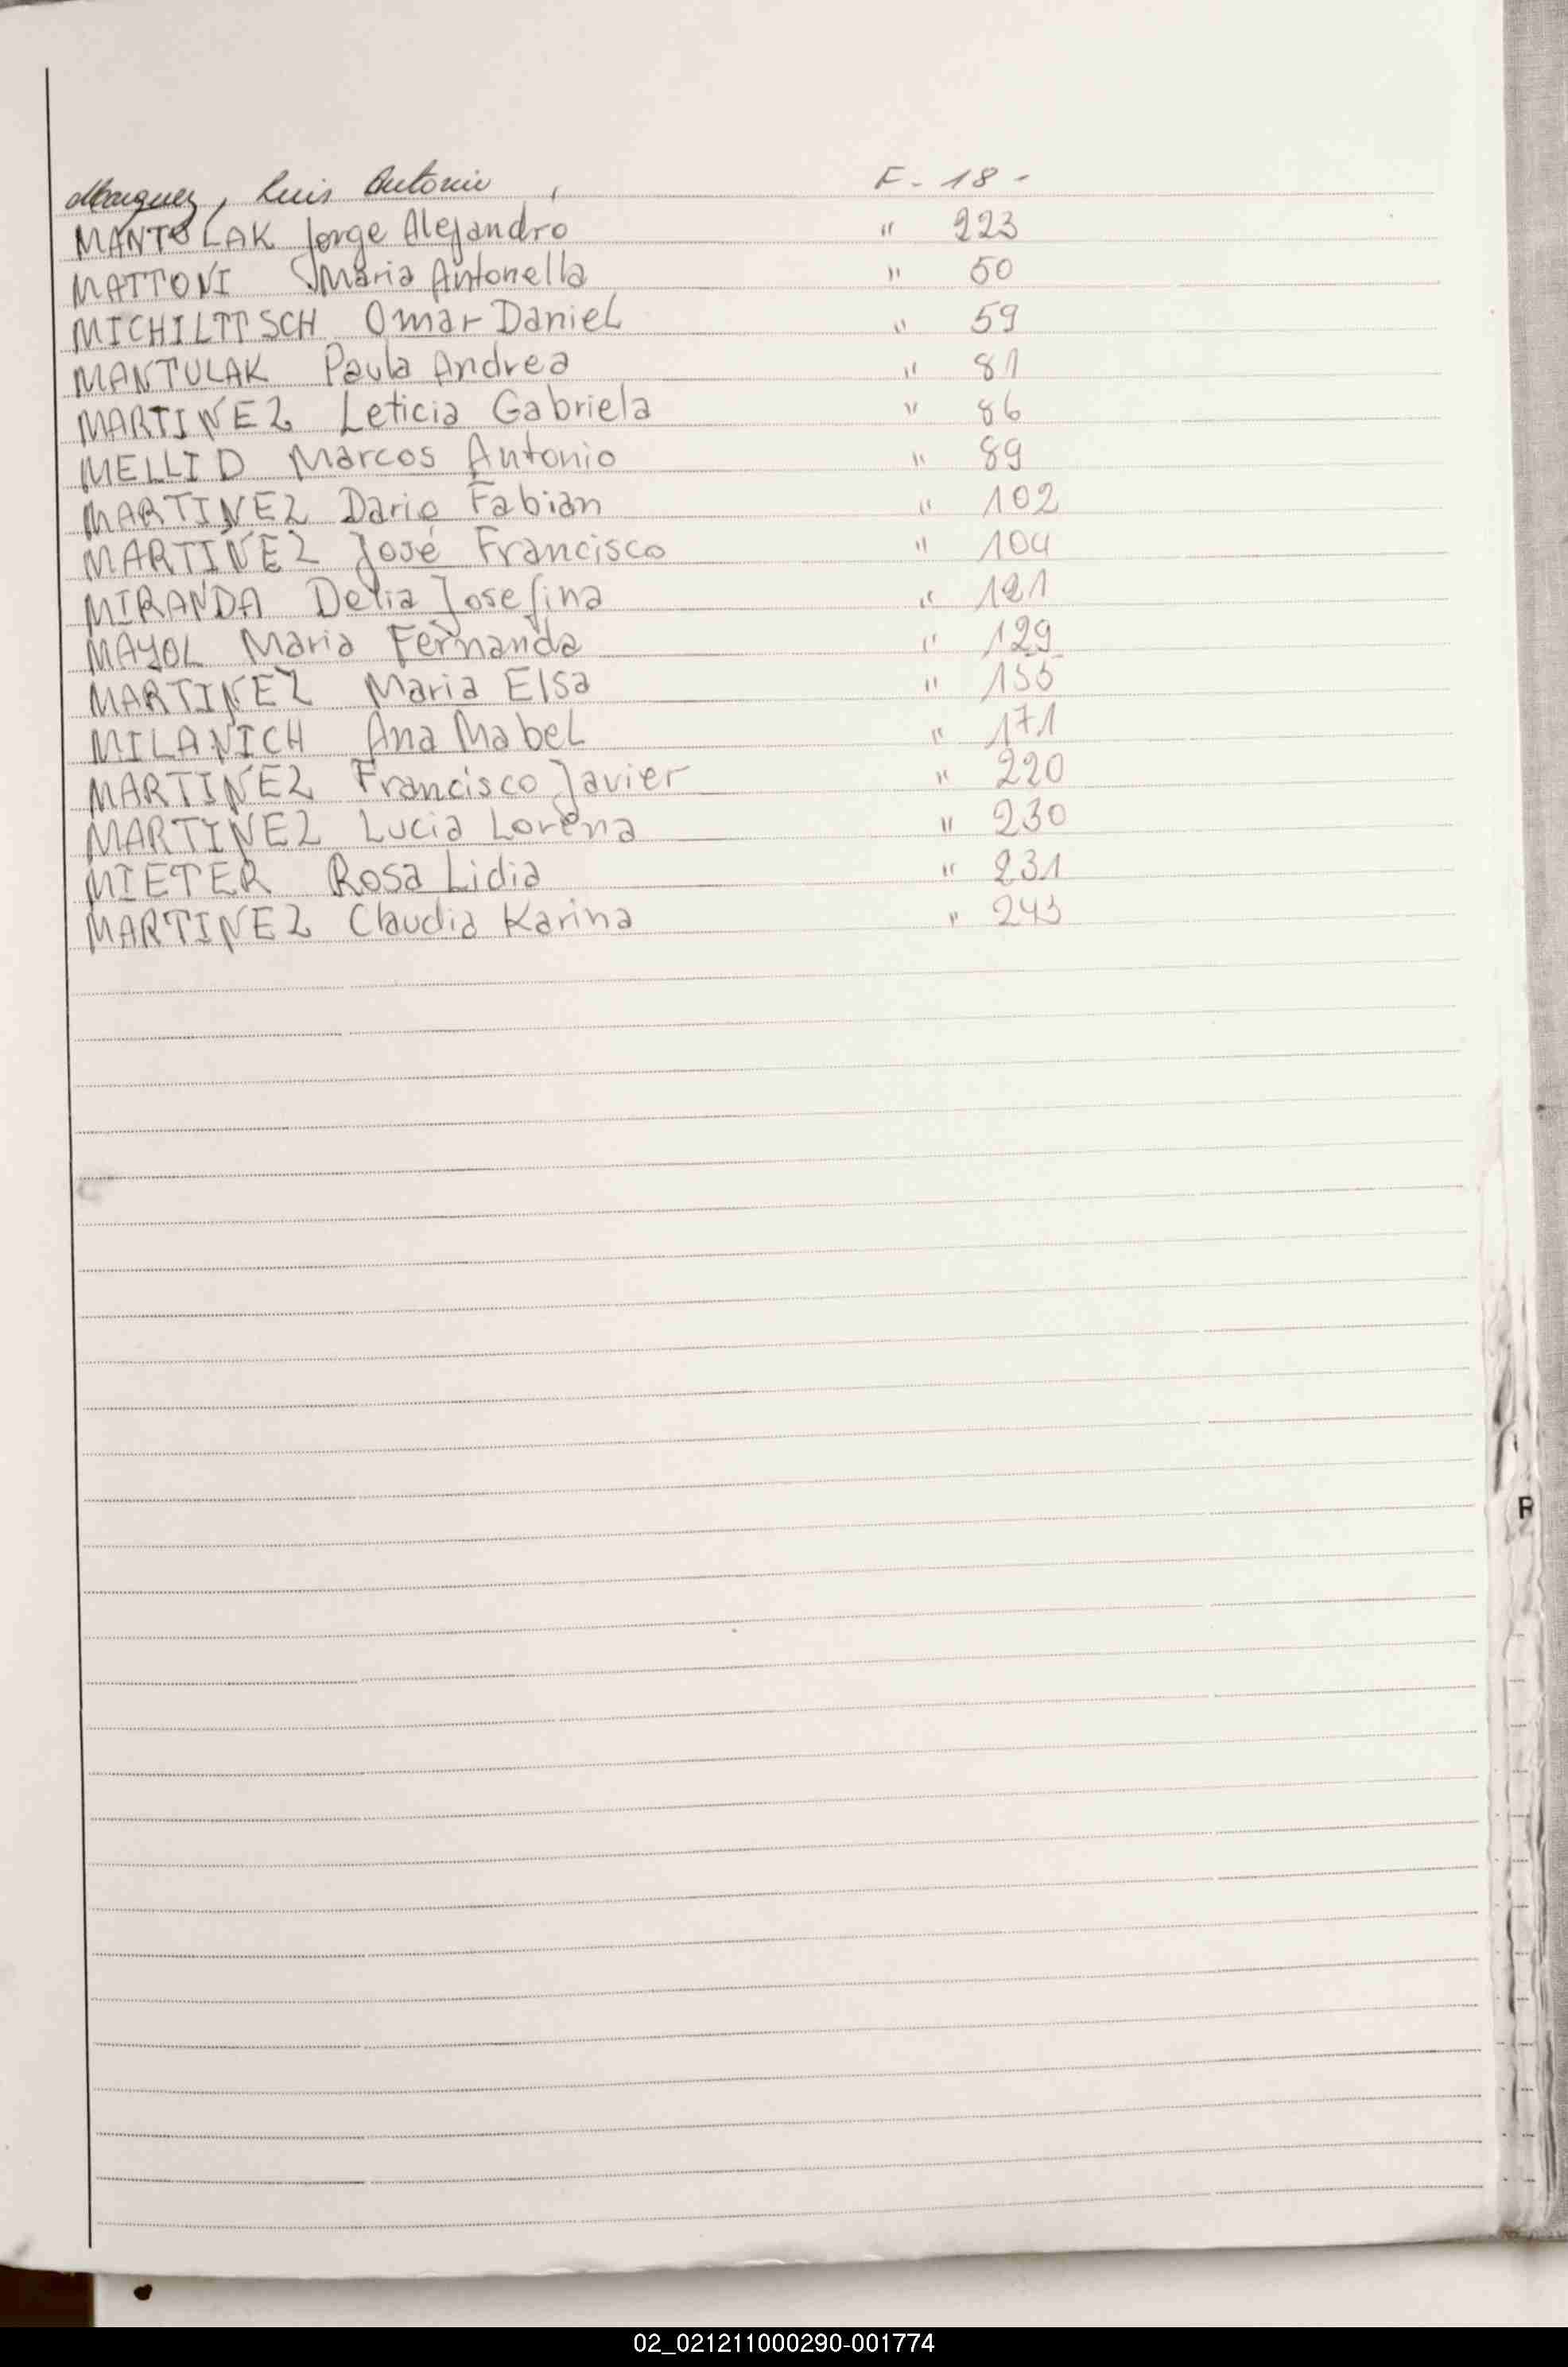 Marquez, Luis Antonio, F - 18 -
MANTULAK Jorge Alejandro " 223
MATTONI Maria Antonella " 50
MICHILTTSCH Omar Daniel " 59
MANTULAK Paula Andrea " 81
MARTINEZ Leticia Gabriela " 86
MELLID Marcos Antonio " 89
MARTINEZ Dario Fabian " 102
MARTINEZ José Francisco " 104
MIRANDA Delia Josefina " 121
MAYOL Maria Fernanda " 129
MARTINEZ Maria Elsa " 155
MILANICH Ana Mabel " 171
MARTINEZ Francisco Javier " 220
MARTINEZ Lucia Lorena " 230
MIETER Rosa Lidia " 231
MARTINEZ Claudia Karina " 243
R
02_021211000290-001774